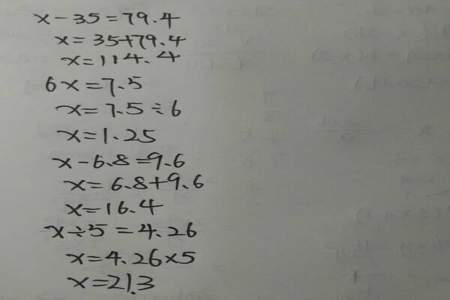 x-35=79.4
x=35+79.4
x=114.4
6x=7.5
x=7.5÷6
x=1.25
x-6.8=9.6
x=6.8+9.6
x=16.4
x÷5=4.26
x=4.26×5
x=21.3